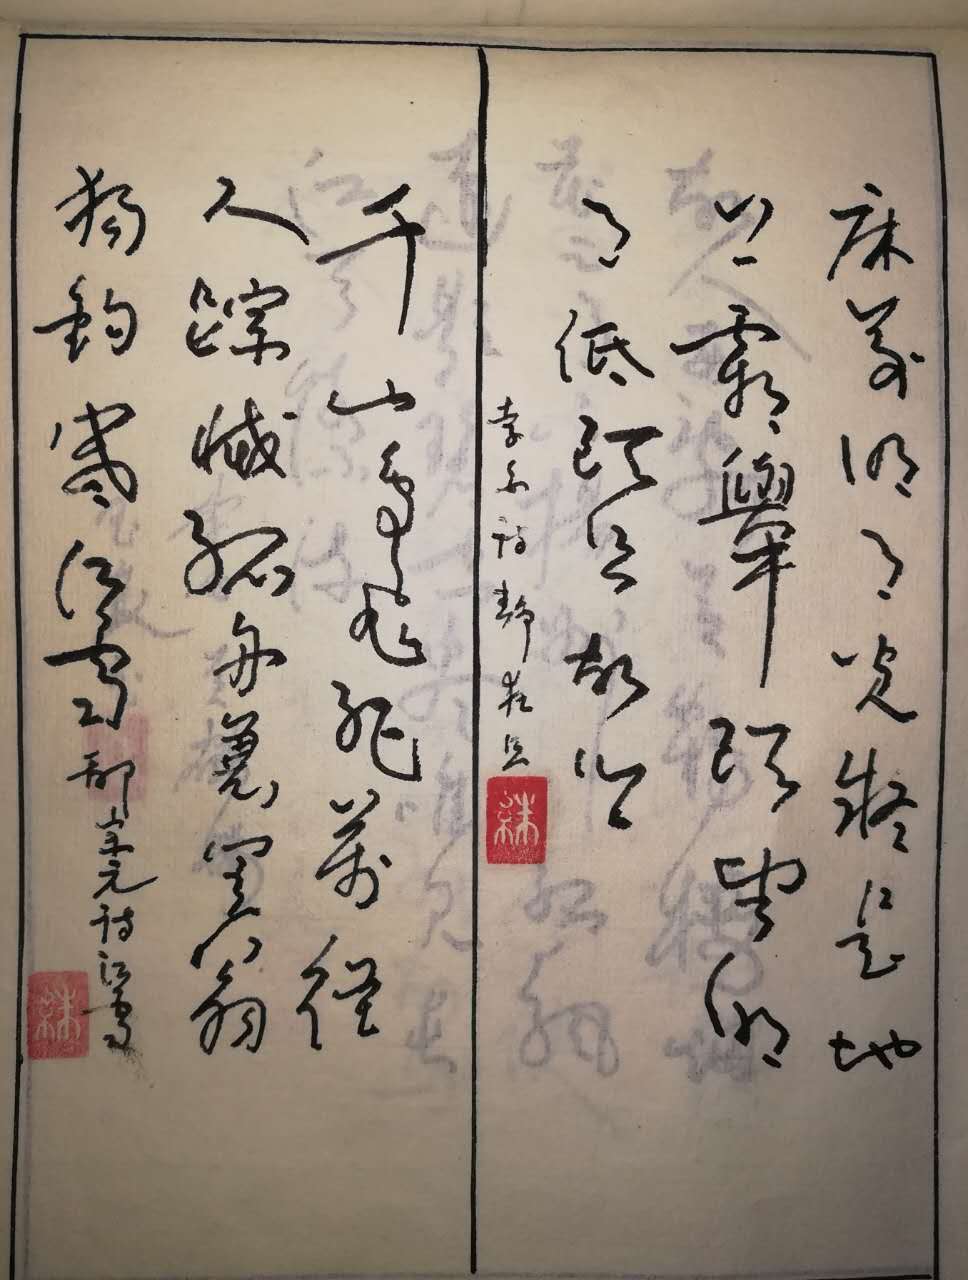 床前明月光疑是地
上霜舉頭望明
月低頭思故鄉
李白詩靜夜思
千山鳥飛絕萬徑
人踪滅孤舟蓑笠翁
獨釣寒江雪
柳宗元詩江雪